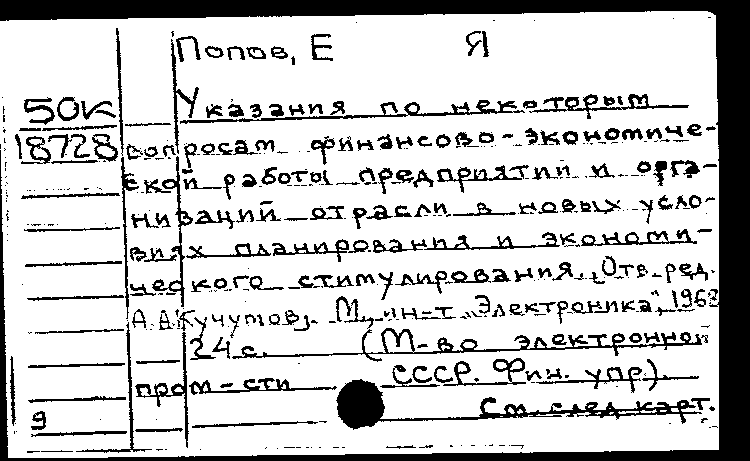 Попов, Е Я
50К Указания по некоторым
18728 вопросам финансово-экономиче-
ской работы предприятий и орга-
низаций отрасли в новых усло-
виях планирования и экономи-
ческого стимулирования. (Отв. ред.
А.А.Кучумов). М., ин-т "Электроника", 1968
24 с. (М-во электронной
пром-сти СССР. Фин. упр.).
9 См. след карт.